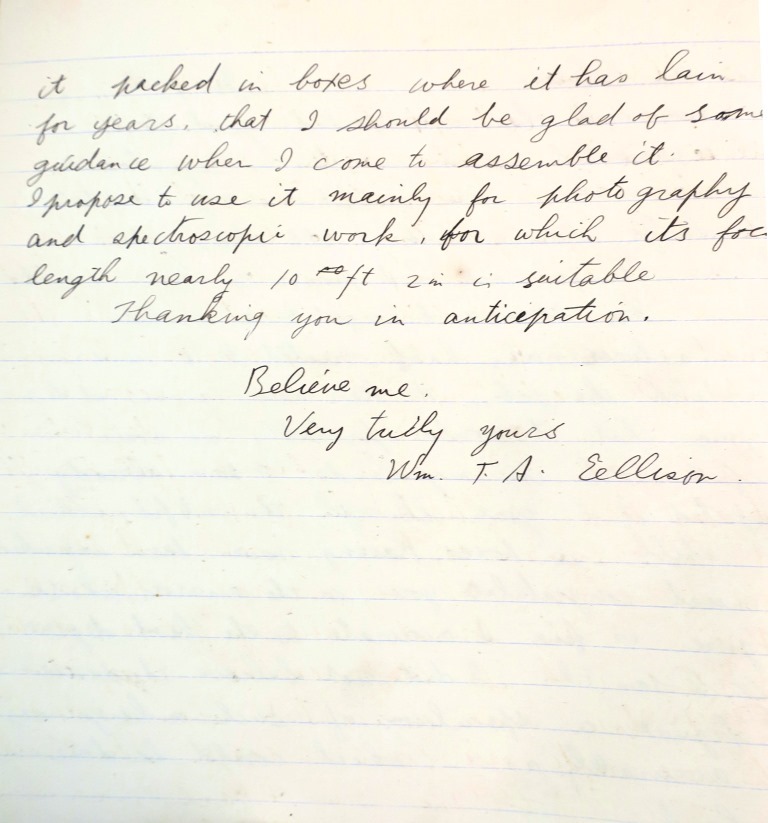 it packed in boxes where it has lain
for years, that I should be glad of some
guidance when I come to assemble it.
I propose to use it mainly for photography
and spectroscopic work, for which its foc
length nearly 10 ft 2 in is suitable
Thanking you in anticipation.
Believe me.
Very truly yours
Wm. T. A. Ellison.